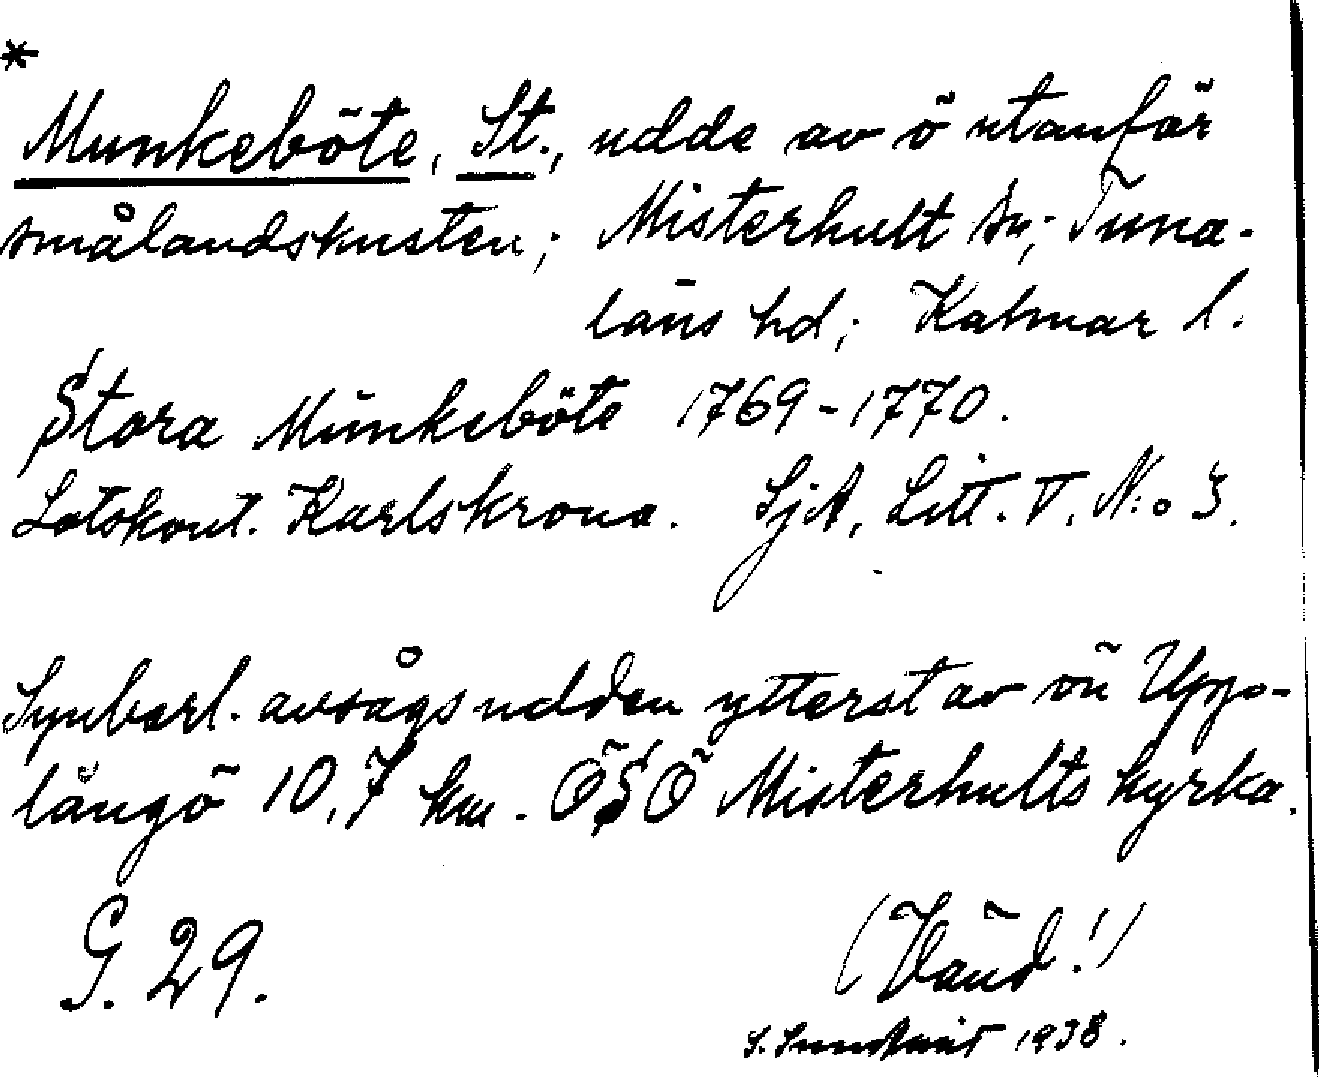 *
Munkeböte, St., udde av ö utanför
smålandskusten; Misterhult sn; Tuna-
läns hd; Kalmar l.
Stora Munkeböte 1769-1770.
Lotskont. Karlskrona. SjA, Litt. T. N:o 3.
Synbarl. avsågs udden ytterst av ön Upp-
långö 10,7 km. ÖSÖ Misterhults kyrka.
G. 29.
(Vänd!)
S. 1938.